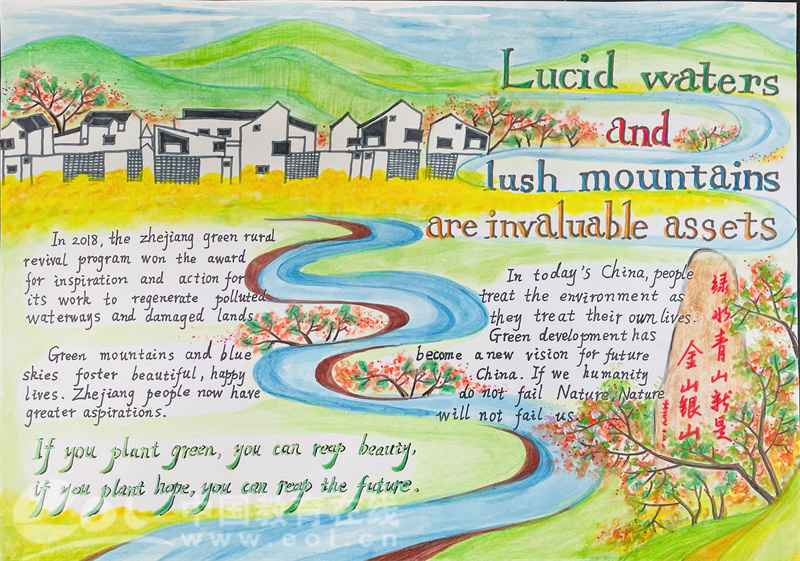 Lucid waters
and
lush mountains
are invaluable assets
In 2018, the zhejiang green rural
revival program won the award
for inspiration and action for
its work to regenerate polluted
waterways and damaged lands.
Green mountains and blue
skies foster beautiful, happy
lives. Zhejiang people now have
greater aspirations.
In today's China, people
treat the environment as
they treat their own lives.
Green development has
become a new vision for future
China. If we humanity
do not fail Nature, Nature
will not fail us.
绿水青山就是
金山银山
If you plant green, you can reap beauty,
if you plant hope, you can reap the future.
eol 中国教育在线
www.eol.cn